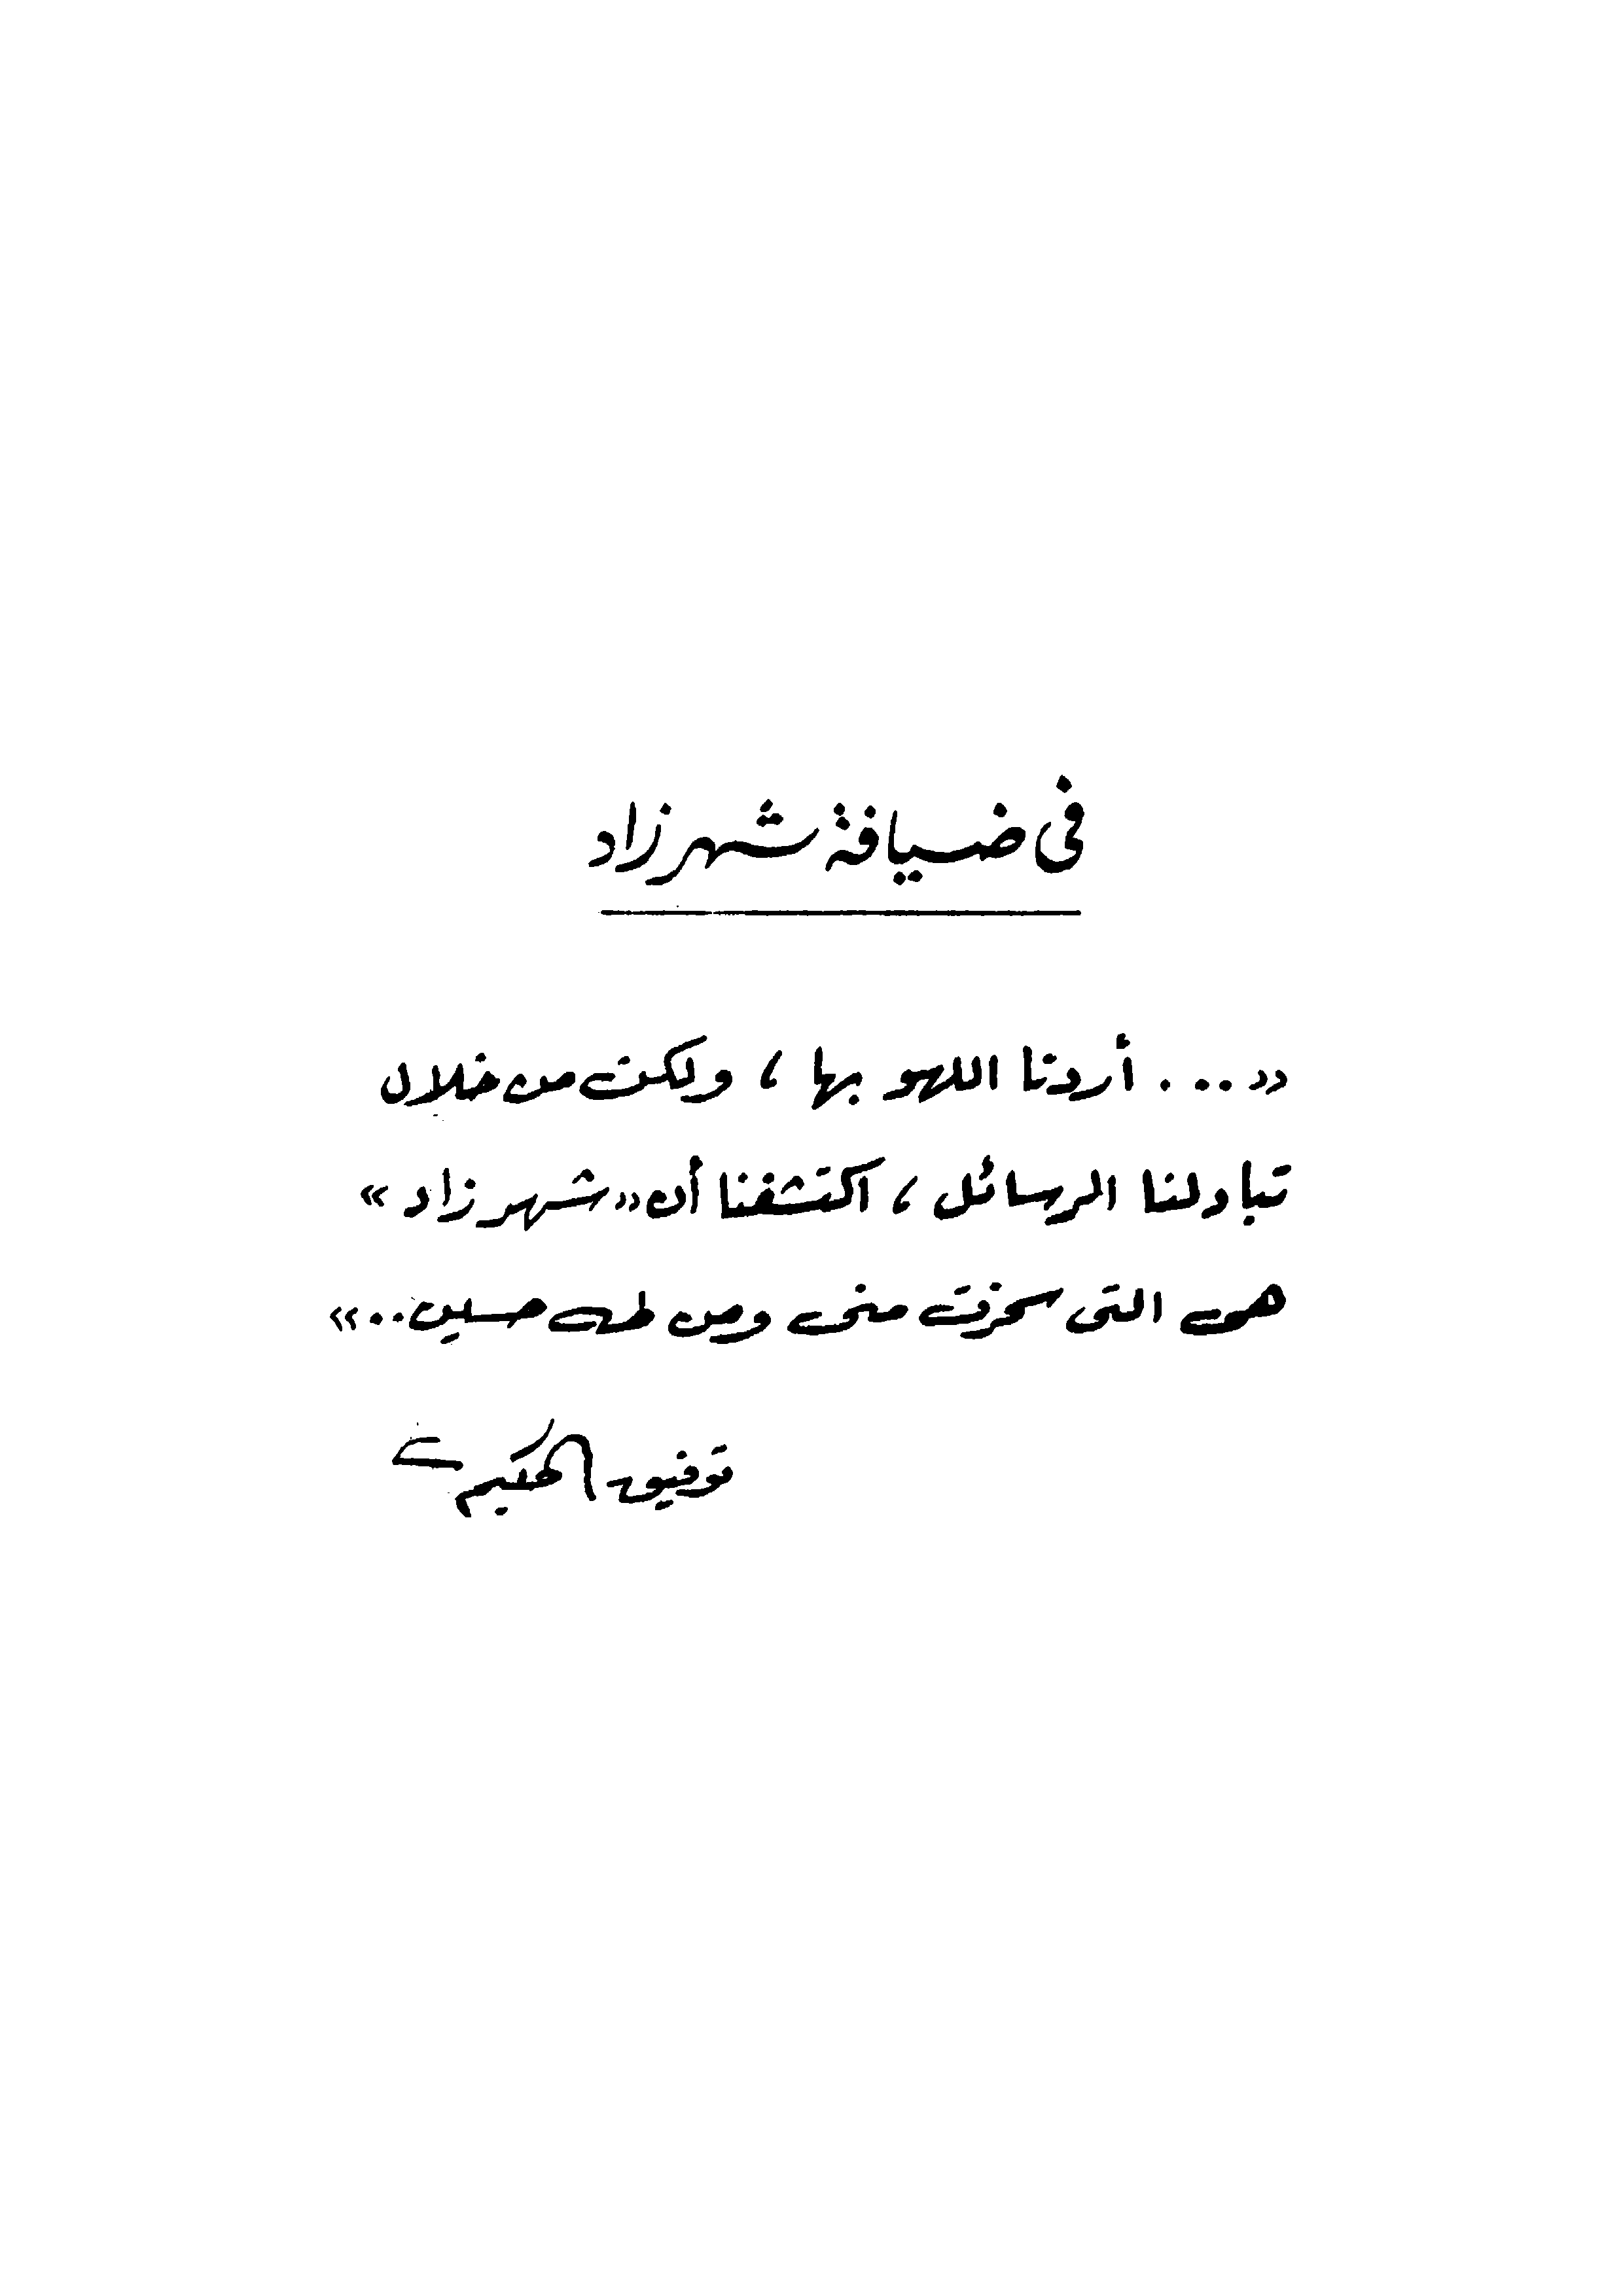 فى ضيافة شهرزاد
«.... أردنا اللهو بها ، ولكن من خلال
تبادلنا الرسائل ، اكتشفنا أن «شهرزاد»
هى التى سخرت منى ومن طه حسين..»
توفيق الحكيم